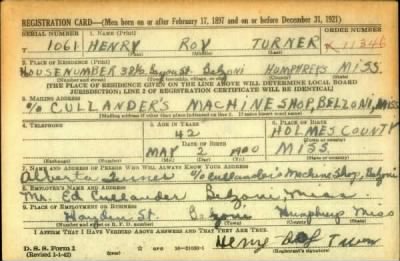 REGISTRATION CARD—(Men born on or after February 17, 1897 and on or before December 31, 1921)
SERIAL NUMBER 1. NAME (Print) ORDER NUMBER
T 1061 HENRY ROY TURNER K 11346
(First) (Middle) (Last)
2. PLACE OF RESIDENCE (Print)
HOUSENUMBER 38½ Bayou St. Belzoni HUMPHREYS MISS.
(Number and street) (Town, township, village, or city) (County) (State)
[THE PLACE OF RESIDENCE GIVEN ON THE LINE ABOVE WILL DETERMINE LOCAL BOARD
JURISDICTION; LINE 2 OF REGISTRATION CERTIFICATE WILL BE IDENTICAL]
3. MAILING ADDRESS
c/o CULLANDER'S MACHINE SHOP, BELZONI, MISS
[Mailing address if other than place indicated on line 2. If same insert word same]
4. TELEPHONE 5. AGE IN YEARS 6. PLACE OF BIRTH
42 HOLMES COUNTY
DATE OF BIRTH (Town or county)
MAY 2 1900 MISS
(Exchange) (Number) (Mo.) (Day) (Yr.) (State or country)
7. NAME AND ADDRESS OF PERSON WHO WILL ALWAYS KNOW YOUR ADDRESS
Alberta c/o Cullander's Machine Shop, Belzoni
8. EMPLOYER'S NAME AND ADDRESS
Mr. Ed Cullander Belzoni, Miss
9. PLACE OF EMPLOYMENT OR BUSINESS
Hayden St. Belzoni Humphreys Miss
(Number and street or R. F. D. number) (Town) (County) (State)
I AFFIRM THAT I HAVE VERIFIED ABOVE ANSWERS AND THAT THEY ARE TRUE.
D. S. S. Form 1
(Revised 1-1-42) (over) 16—21630-1
Henry Roy Turner
(Registrant's signature)